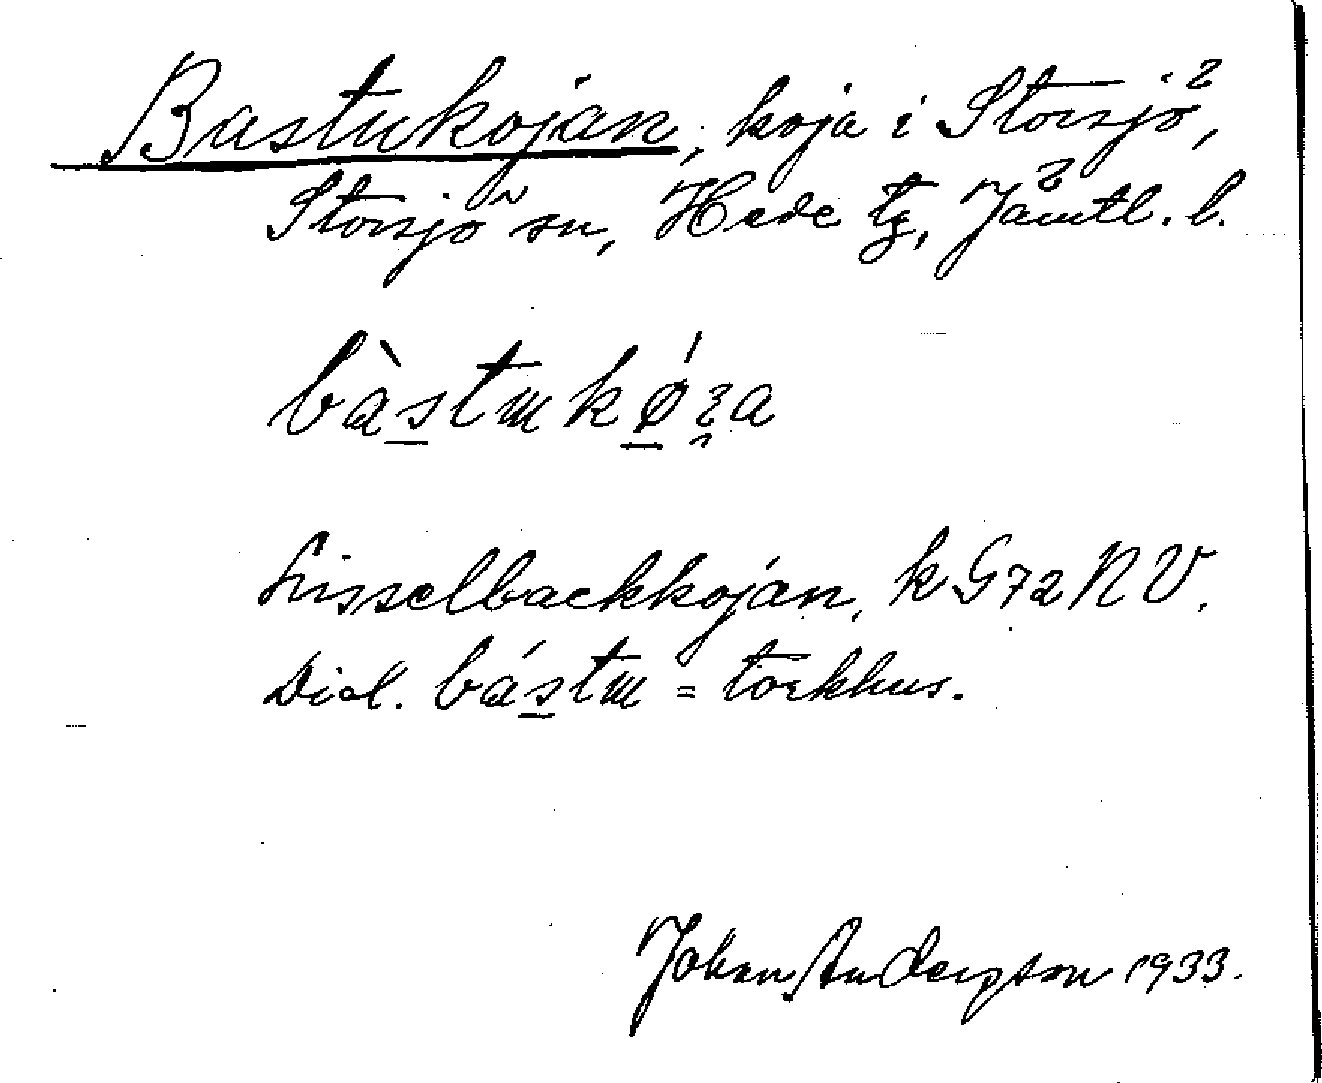 Bastukojan, koja i Storsjö,
Storsjö sn, Hede tg, Jämtl. l.
bàs̲tɯkǿ̲ʒa
Lisselbackkojan, k G72NV.
Dial. bás̲tɯ = torkhus.
Johan Andersson 1933.